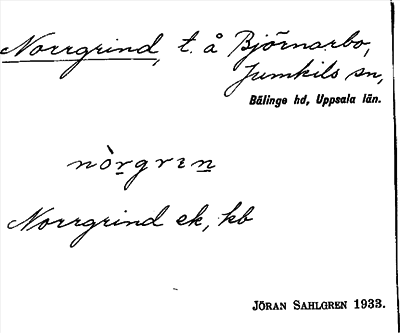 Norrgrind, t. å Björnarbo,
Jumkils sn,
Bälinge hd, Uppsala län.
nòrgrın
Norrgrind ek, kb
JÖRAN SAHLGREN 1933.